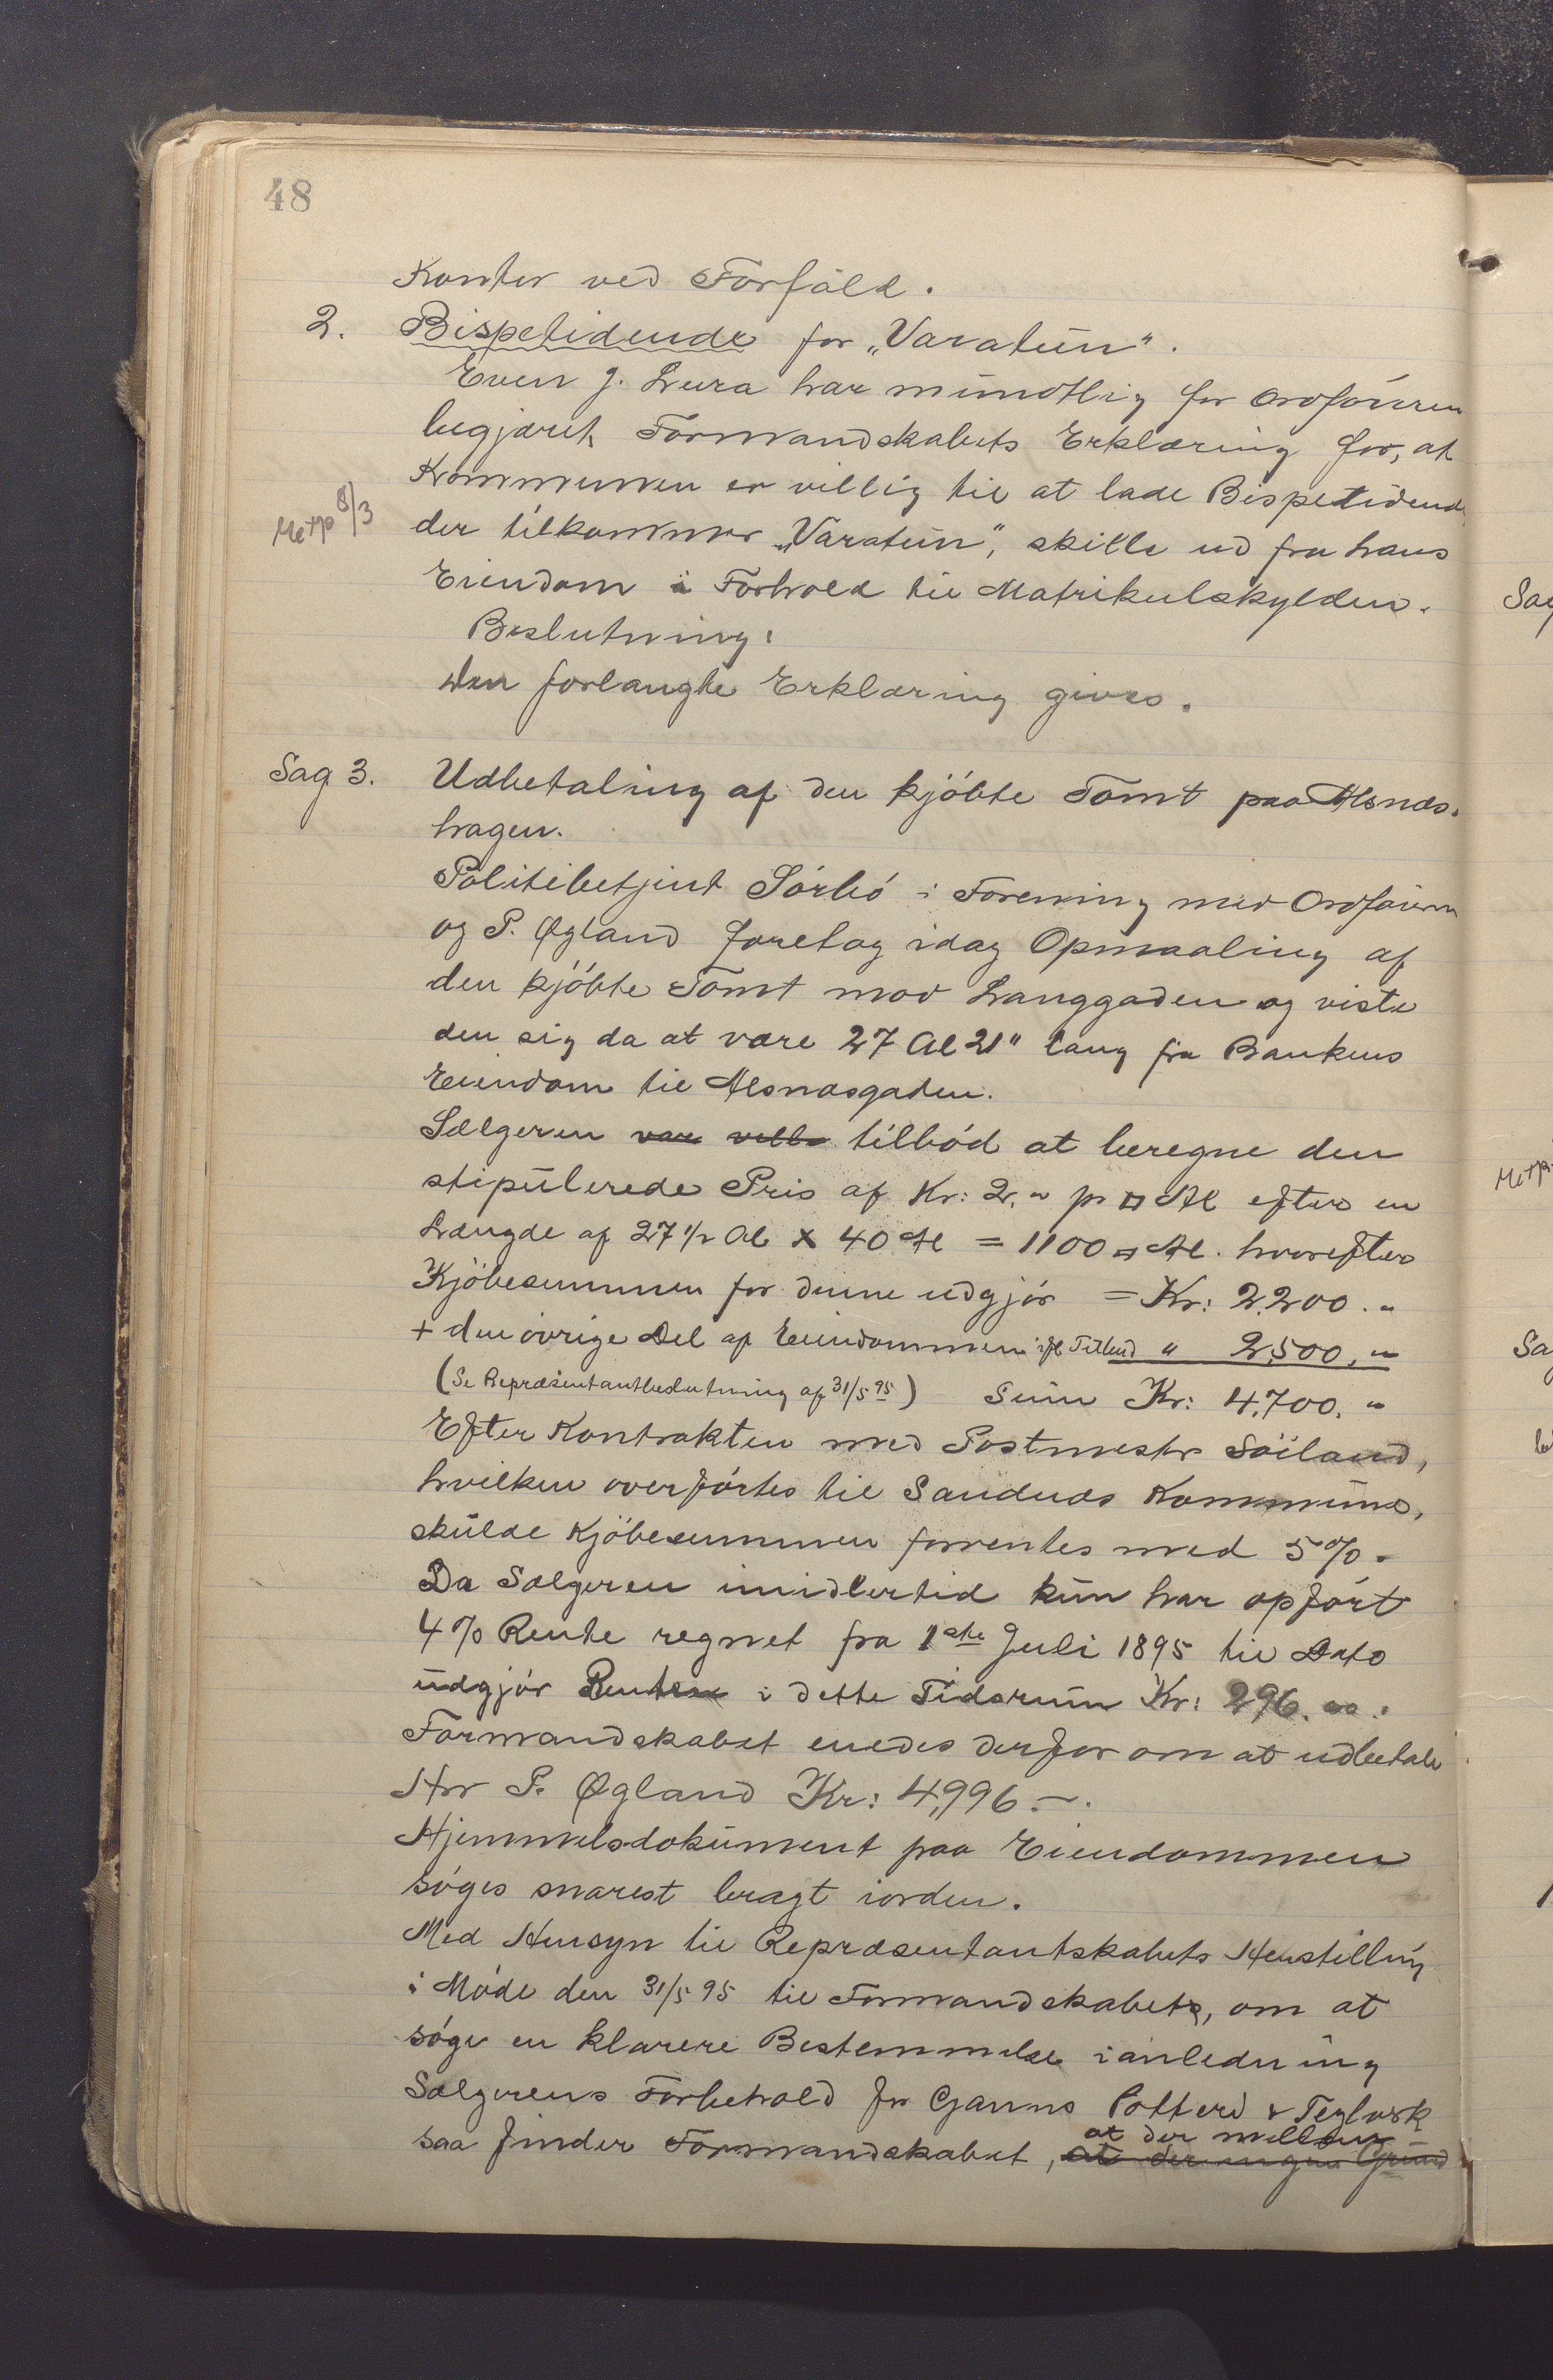 48
Kontor ved Forfald.
2. Bispetidende for „Varatun“.
Even J. Lura har mundtlig for Ordføreren
begjæret Formandskabets Erklæring for, at
Kommunen er villig til at lade Bispetidende
8/3 der tilkommer „Varatun“, skille ud fra hans
Eiendom i Forhold til Matrikulskylden.
Beslutning:
Den forlangte Erklæring gives.
Sag 3. Udbetaling af den kjøbte Tomt paa Alsnæs-
hagen.
Politibetjent Sørbø i Forening med Ordføreren
og P. Øgland foretog idag Opmaaling af
den kjøbte Tomt mod Langgaden og viste
den sig da at være 27 Al 21" lang fra Bankens
Eiendom til Alsnæsgaden.
Sælgeren var villi tilbød at beregne den
stipulerede Pris af Kr: 2,„ pr □ Al efter en
Længde af 27 1/2 Al x 40 Al = 1100 □ Al. hvorefter
Kjøbesummen for denne udgjør = Kr: 2,200.„
+ den øvrige Del af Eiendommen ifl Tilbud " 2,500,„
(Se Repræsentantbeslutning af 31/5 95) Sum Kr: 4,700.„
Efter Kontrakten med Postmester Søiland,
hvilken overførtes til Sandnæs Kommune,
skulde Kjøbesummen forrentes med 5%.
Da Sælgeren imidlertid kun har opført
4% Rente regnet fra 1ste Juli 1895 til Dato
udgjør Renten i dette Tidsrum Kr: 296.oo.
Formandskabet enedes derfor om at udbetale
Hrr P. Øgland Kr: 4,996.–.
Hjemmelsdokument paa Eiendommen
søges snarest bragt iorden.
Med Hensyn til Repræsentantskabets Henstilling
i Møde den 31/5 95 til Formandskabet, om at
søge en klarere Bestemmelse ianledning
Sælgerens Forbehold for Ganns Potteri & Teglværk
at der mellem
saa finder Formandskabet, at der ingen Grund